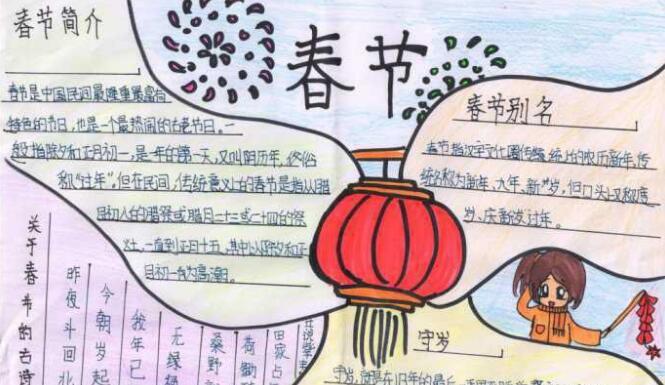 春节
春节简介
春节是中国民间最隆重最富有
特色的节日,也是一个最热闹的古老节日。一
般指除夕和正月初一,是一年的第一天,又叫阴历年,俗
和"过年"。但在民间,传统意义上的春节是指从腊
月初八的腊祭或腊月二十三或二十四的祭
灶,一直到正月十五,其中以除夕和正
月初一为高潮。
春节别名
春节指汉字文化圈传统上的农历新年,传
统名称为新年、大年、新岁,但口头上又称度
岁、庆新岁、过年。
关于春节的古诗
昨夜斗回北
今朝岁起
我年已
无禄
桑野
荷锄
田家占
守岁
守岁,就是在旧年的最后